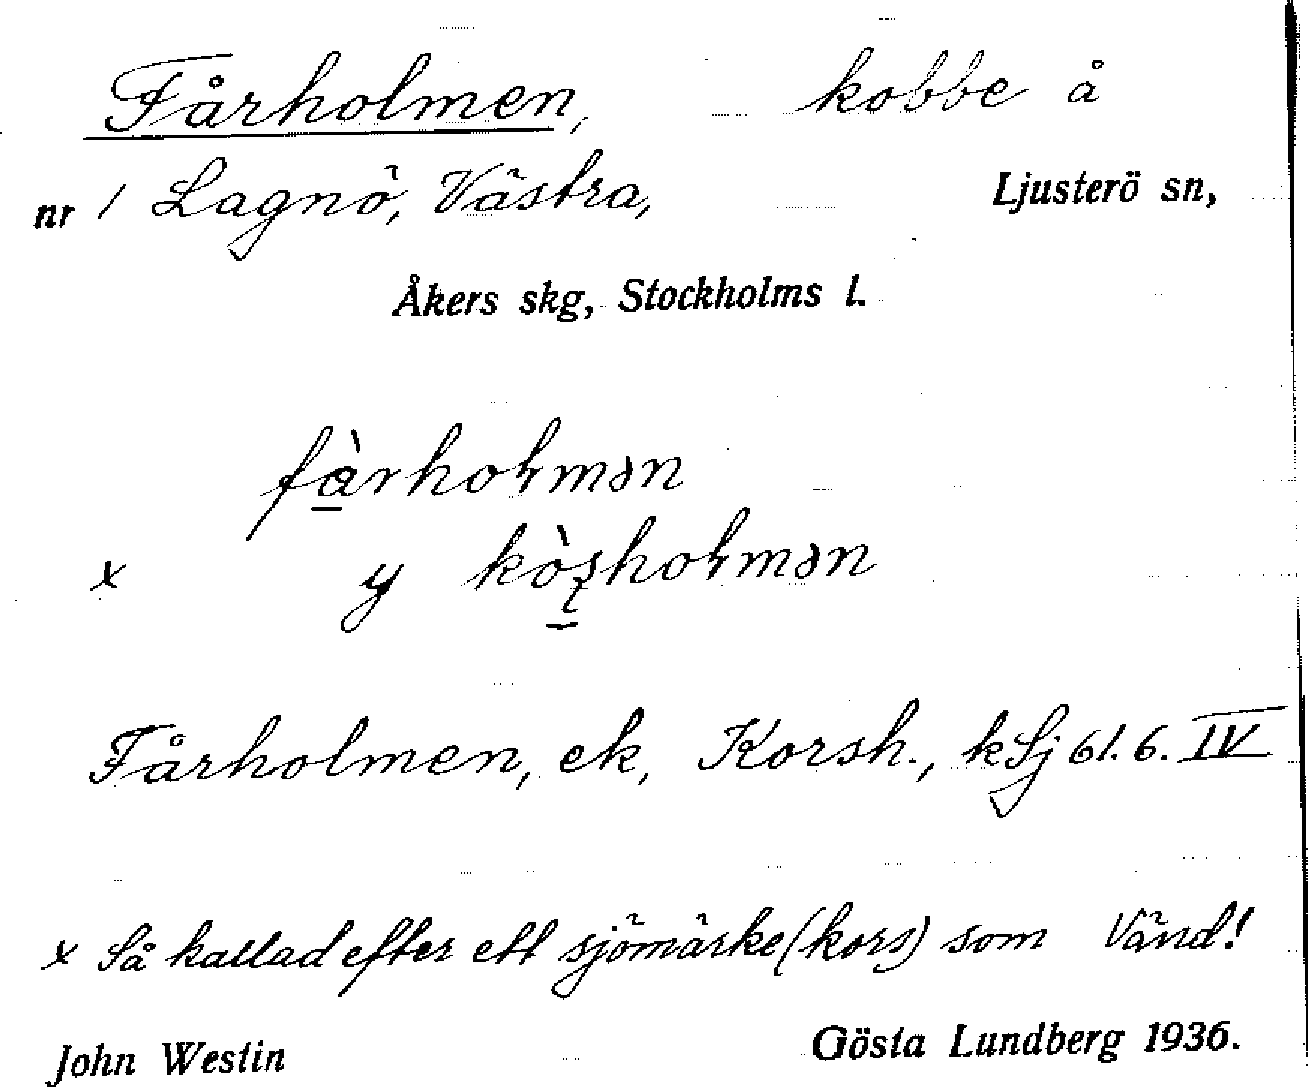 Fårholmen, kobbe å
nr 1 Lagnö, Västra, Ljusterö sn,
Åkers skg, Stockholms l.
fà̱rhoɫmən
x y kò̱ʂhoɫmən
Fårholmen, ek, Korsh., k Sj 61. 6. IV
x Så kallad efter ett sjömärke (kors) som Vänd!
John Westin Gösta Lundberg 1936.